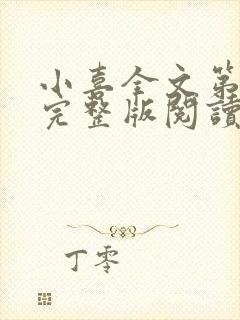 小喜全文第
完整版閱讀
丁零